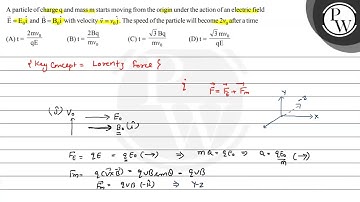 A particle of charge q and mass m starts moving from the origin under the action of an electric field
E⃗ = E₀î and B⃗ = B₀î with velocity v⃗ = v₀ĵ. The speed of the particle will become 2v₀ after a time
(A) t = 2mv₀/qE (B) t = 2Bq/mv₀ (C) t = √3 Bq/mv₀ (D) t = √3 mv₀/qE
PW
{Key Concept = Lorentz Force}
F⃗ = F⃗E + F⃗m
(ĵ) V₀
E₀
B₀ (î)
Y
X
Z
FE = qE = qE₀ (→) ⇒ ma = qE₀ ⇒ a = qE₀/m (→)
Fm = q(v⃗×B⃗) = qvB sinθ = qvB
Fm = qvB (-k̂) ⇒ Y-Z